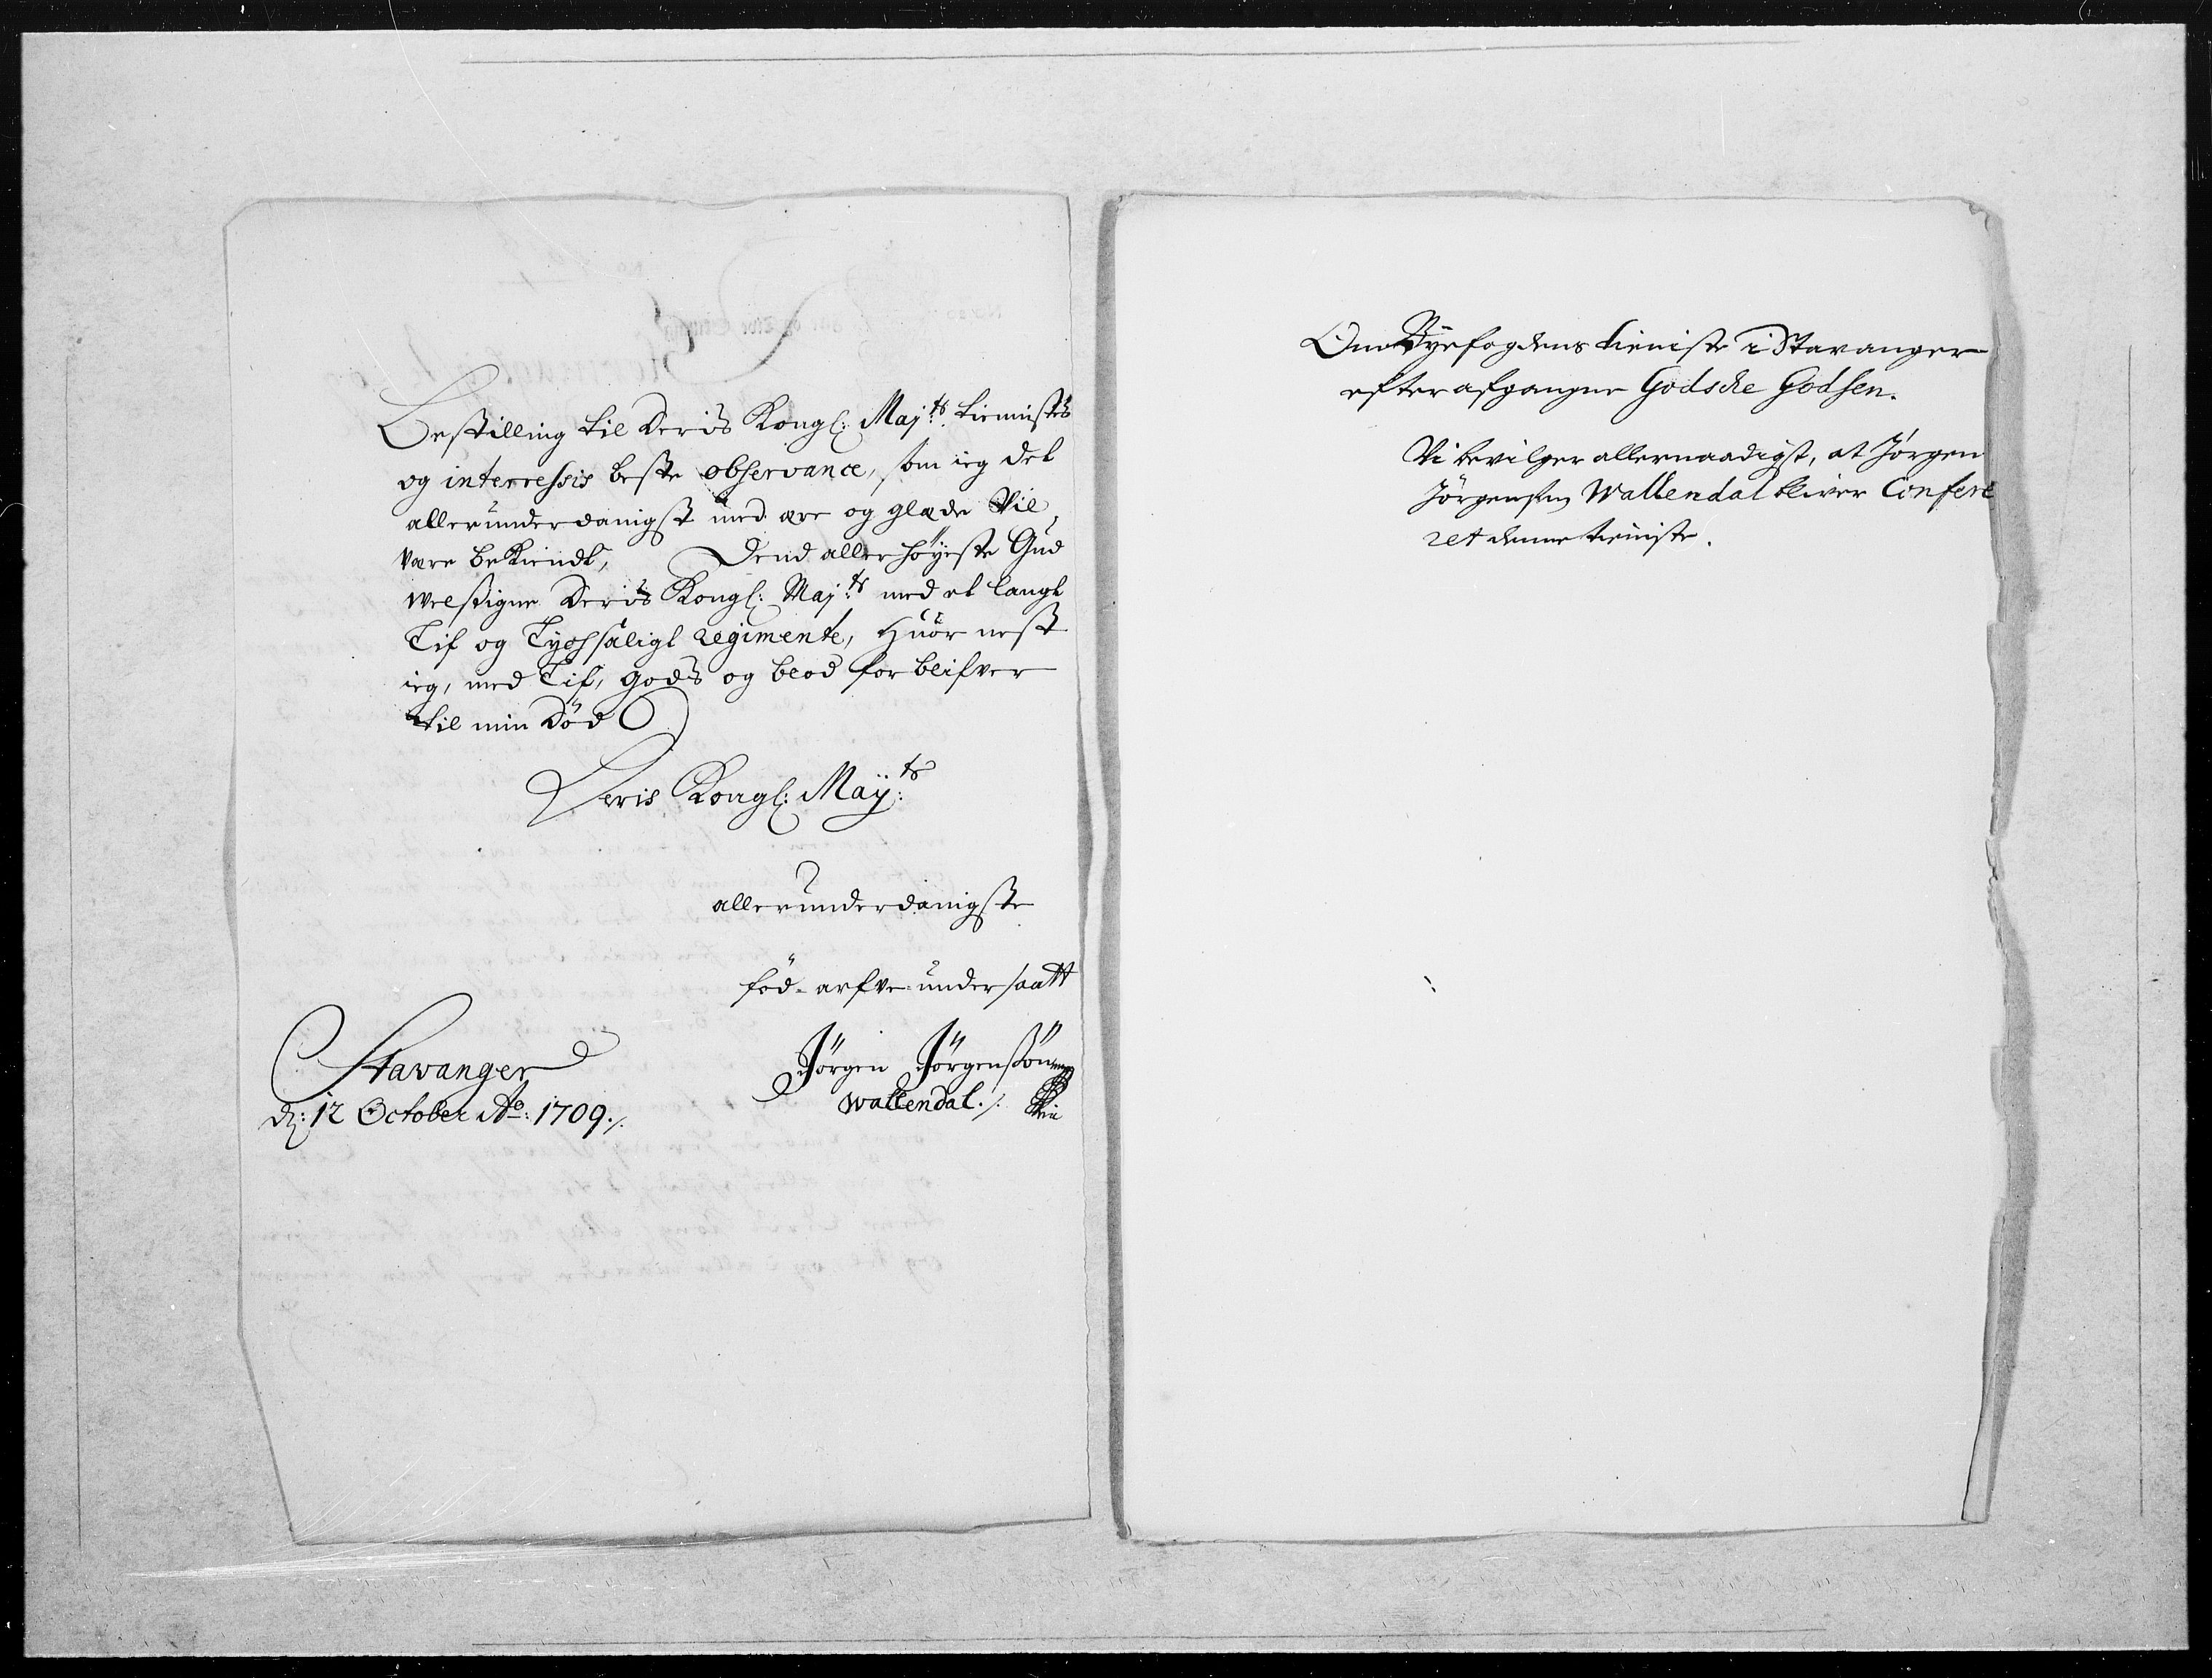 Bestilling til Deris Kongl: Maj:ts tiennistes
og interressis beste observance, som ieg det
allerunderdanigst med ære og glæde Vil
være bekiendt, Dend allerhöyeste Gud
welsigne Deris Kongl: Maj:ts med et langt
Lif og Lychsaligt Regimente, Huor nest
ieg, med Lif, gods og blod forblifver
til min Död
Deris Kongl: Maÿ:ts
allerunderdanigste
föd-arfve-undersaatt
Stavanger
d: 12 October Ao: 1709./.
Jörgen Jörgensön
Wallendal./.
Om Byefogdens tieniste i Stavanger
efter afgangne Godsche Godsen.
Vi bevilger allernaadigst, at Jörgen
Jörgensen Wallendal bliver Confere
ret denne tieniste.